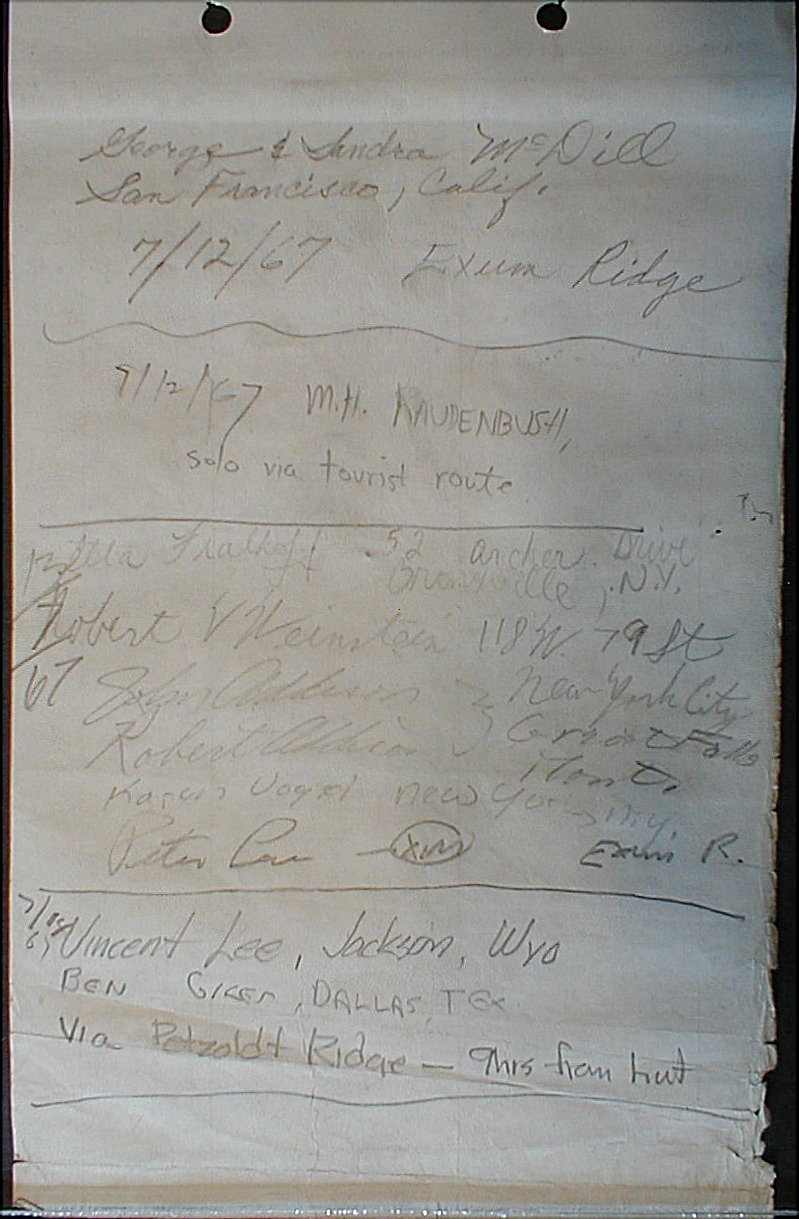 George & Sandra McDill
San Francisco, Calif.
7/12/67 Exum Ridge
7/12/67 M.H. RAUDENBUSH,
solo via tourist route
52 archer Drive
N.Y.
Robert V Weinstein 118 W. 79 St
67 John Addison New York City
Robert Addison Great Falls
Mont.
Karen Vogel New York, NY.
Peter Exum R.
Vincent Lee, Jackson, Wyo
BEN DALLAS, TEX
Via Petzoldt Ridge — 9hrs from hut